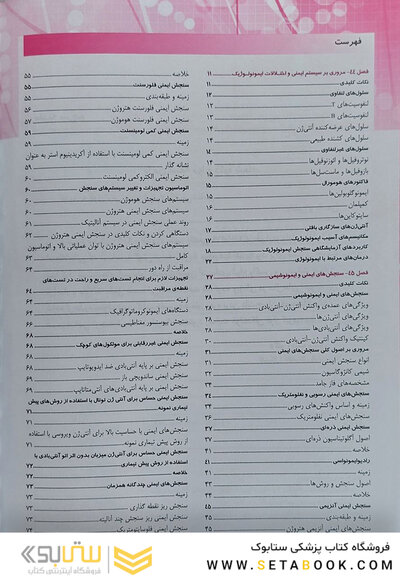 فهرست
فصل ٤٤- مروری بر سیستم ایمنی و اختلالات ایمونولوژیک ١١
نکات کلیدی ١١
سلول‌های لنفاوی ١٢
لنفوسیت‌های T ١٢
لنفوسیت‌های B ١٣
سلول‌های عرضه‌کننده آنتی‌ژن ١٤
سلول‌های کشنده طبیعی ١٤
سلول‌های غیرلنفاوی
نوتروفیل‌ها و ائوزنوفیل‌ها
بازوفیل‌ها و ماست‌سل‌ها ١٥
فاکتورهای هومورال ١٥
ایمونوگلوبولین‌ها ١٥
کمپلمان
سایتوکاین‌ها
آنتی‌ژن‌های سازگاری بافتی ١٧
مکانیسم‌های آسیب ایمونولوژیک
کاربردهای آزمایشگاهی سنجش ایمونولوژیک ١٨
درمان‌های مرتبط با ایمونولوژی ٢٢
فصل ٤٥- سنجش‌های ایمنی و ایمونوشیمی ٢٧
نکات کلیدی ٢٨
سنجش‌های ایمنی و ایمونوشیمی ٢٨
ویژگی‌های عمده‌ی واکنش آنتی‌ژن-آنتی‌بادی
ویژگی‌های آنتی‌ژن‌ها
ویژگی‌های آنتی‌بادی‌ها
کینتیک واکنش آنتی‌ژن-آنتی‌بادی ٣٠
مروری بر اصول کلی سنجش‌های ایمنی
انواع سنجش ایمنی
شیمی کانژوگاسیون
مشخصه‌های فاز جامد
سنجش‌های ایمنی رسوبی و نفلومتریک ٣٤
زمینه و اساس واکنش‌های رسوبی
سنجش‌های ایمنی نفلومتریک
سنجش‌های ایمنی ذره‌ای
اصول آگلوتیناسیون ذره‌ای
خلاصه ٤١
رادیوایمونواسی
زمینه
اصول سنجش و روش‌ها
خلاصه ٤٤
سنجش ایمنی آنزیمی
زمینه و طبقه‌بندی
سنجش‌های ایمنی آنزیمی هتروژن ٤٥
خلاصه ٥٥
سنجش ایمنی فلورسنت ٥٥
زمینه و طبقه‌بندی ٥٥
سنجش ایمنی فلورسنت هتروژن ٥٦
سنجش ایمنی فلورسنت هوموژن ٥٧
سنجش ایمنی کمی لومینسنت ٥٩
زمینه ٥٩
سنجش ایمنی کمی لومینسنت با استفاده از آکریدینیوم استر به عنوان
نشانه گذار ٥٩
سنجش ایمنی الکتروکمی لومینسنت ٦٠
اتوماسیون تجهیزات و تغییر سیستم‌های سنجش ٦٠
سیستم‌های سنجش هوموژن
سیستم‌های سنجش ایمنی هتروژن
روند عملی سنجش ایمنی در سیستم آنالیتیک
دستگاهی کردن و نکات کلیدی در سنجش ایمنی هتروژن ٦٢
سیستم‌های سنجش ایمنی هتروژن با توان عملیاتی بالا و اتوماسیون
کامل
مراقبت از راه دور
تجهیزات لازم برای انجام تست‌های سریع و راحت در تست‌های
نقطه‌ی مراقبت ٦٤
زمینه
دستگاه‌های ایمونوکروماتوگرافیک
سنجش بیوسنسور مغناطیسی
خلاصه ٦٨
سنجش ایمنی غیررقابتی برای مولکول‌های کوچک ٦٨
زمینه ٦٨
سنجش ایمنی بر پایه آنتی‌بادی ضد ایدیوتایپ ٦٨
سنجش ایمنی ساندویچی باز
سنجش ایمنی بر پایه آنتی‌بادی‌های آنتی‌متاتایپ ٦٩
سنجش ایمنی حساس برای آنتی ژن توتال با استفاده از روش‌های پیش
تیماری نمونه
زمینه ٧١
سنجش‌های ایمنی با حساسیت بالا برای آنتی‌ژن ویروسی با استفاده
از روش پیش تیماری نمونه ٧١
سنجش ایمنی حساس برای آنتی ژن میزبان بدون اثر اتو آنتی‌بادی با
استفاده از روش پیش تیماری ٧٢
سنجش‌های ایمنی چند گانه همزمان ٧٣
زمینه ٧٣
سنجش ایمنی ریز نقطه گذاری
سنجش ایمنی ریز سنجش چند آنالیته
سنجش ایمنی فلوسایتومتریک
فروشگاه کتاب پزشکی ستابوک
WWW.SETABOOK.COM
ستابوک
فروشگاه اینترنتی کتاب